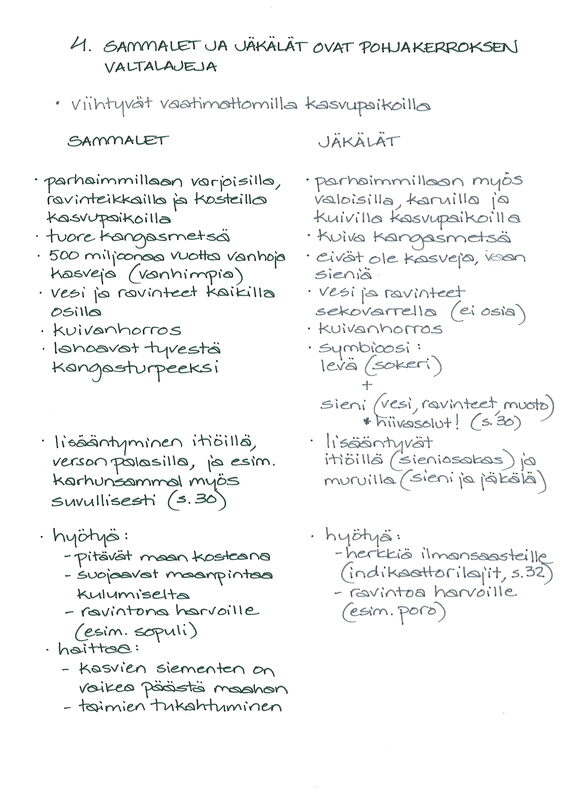 4. SAMMALET JA JÄKÄLÄT OVAT POHJAKERROKSEN
VALTALAJEJA
• viihtyvät vaatimattomilla kasvupaikoilla
SAMMALET
• parhaimmillaan varjoisilla,
ravinteikkailla ja kosteilla
kasvupaikoilla
• tuore kangasmetsä
• 500 miljoonaa vuotta vanhoja
kasveja (vanhimpia)
• vesi ja ravinteet kaikilla
osilla
• kuivanhorros
• lahoavat tyvestä
kangasturpeeksi
• lisääntyminen itiöillä,
verson palasilla, ja esim.
karhunsammal myös
suvullisesti (s.30)
• hyötyä:
- pitävät maan kosteana
- suojaavat maanpintaa
kulumiselta
- ravintona harvoille
(esim. sopuli)
• haittaa:
- kasvien siementen on
vaikea päästä maahan
- taimien tukahtuminen
JÄKÄLÄT
• parhaimmillaan myös
valoisilla, karuilla ja
kuivilla kasvupaikoilla
• kuiva kangasmetsä
• eivät ole kasveja, vaan
sieniä
• vesi ja ravinteet
sekovarrella (ei osia)
• kuivanhorros
• symbioosi:
levä (sokeri)
+
sieni (vesi, ravinteet, muoto)
* hiivasolut! (s.30)
• lisääntyvät
itiöillä (sieniosakas) ja
muruilla (sieni ja jäkälä)
• hyötyä:
- herkkiä ilmansaasteille
(indikaattorilajit, s.32)
- ravintoa harvoille
(esim. poro)